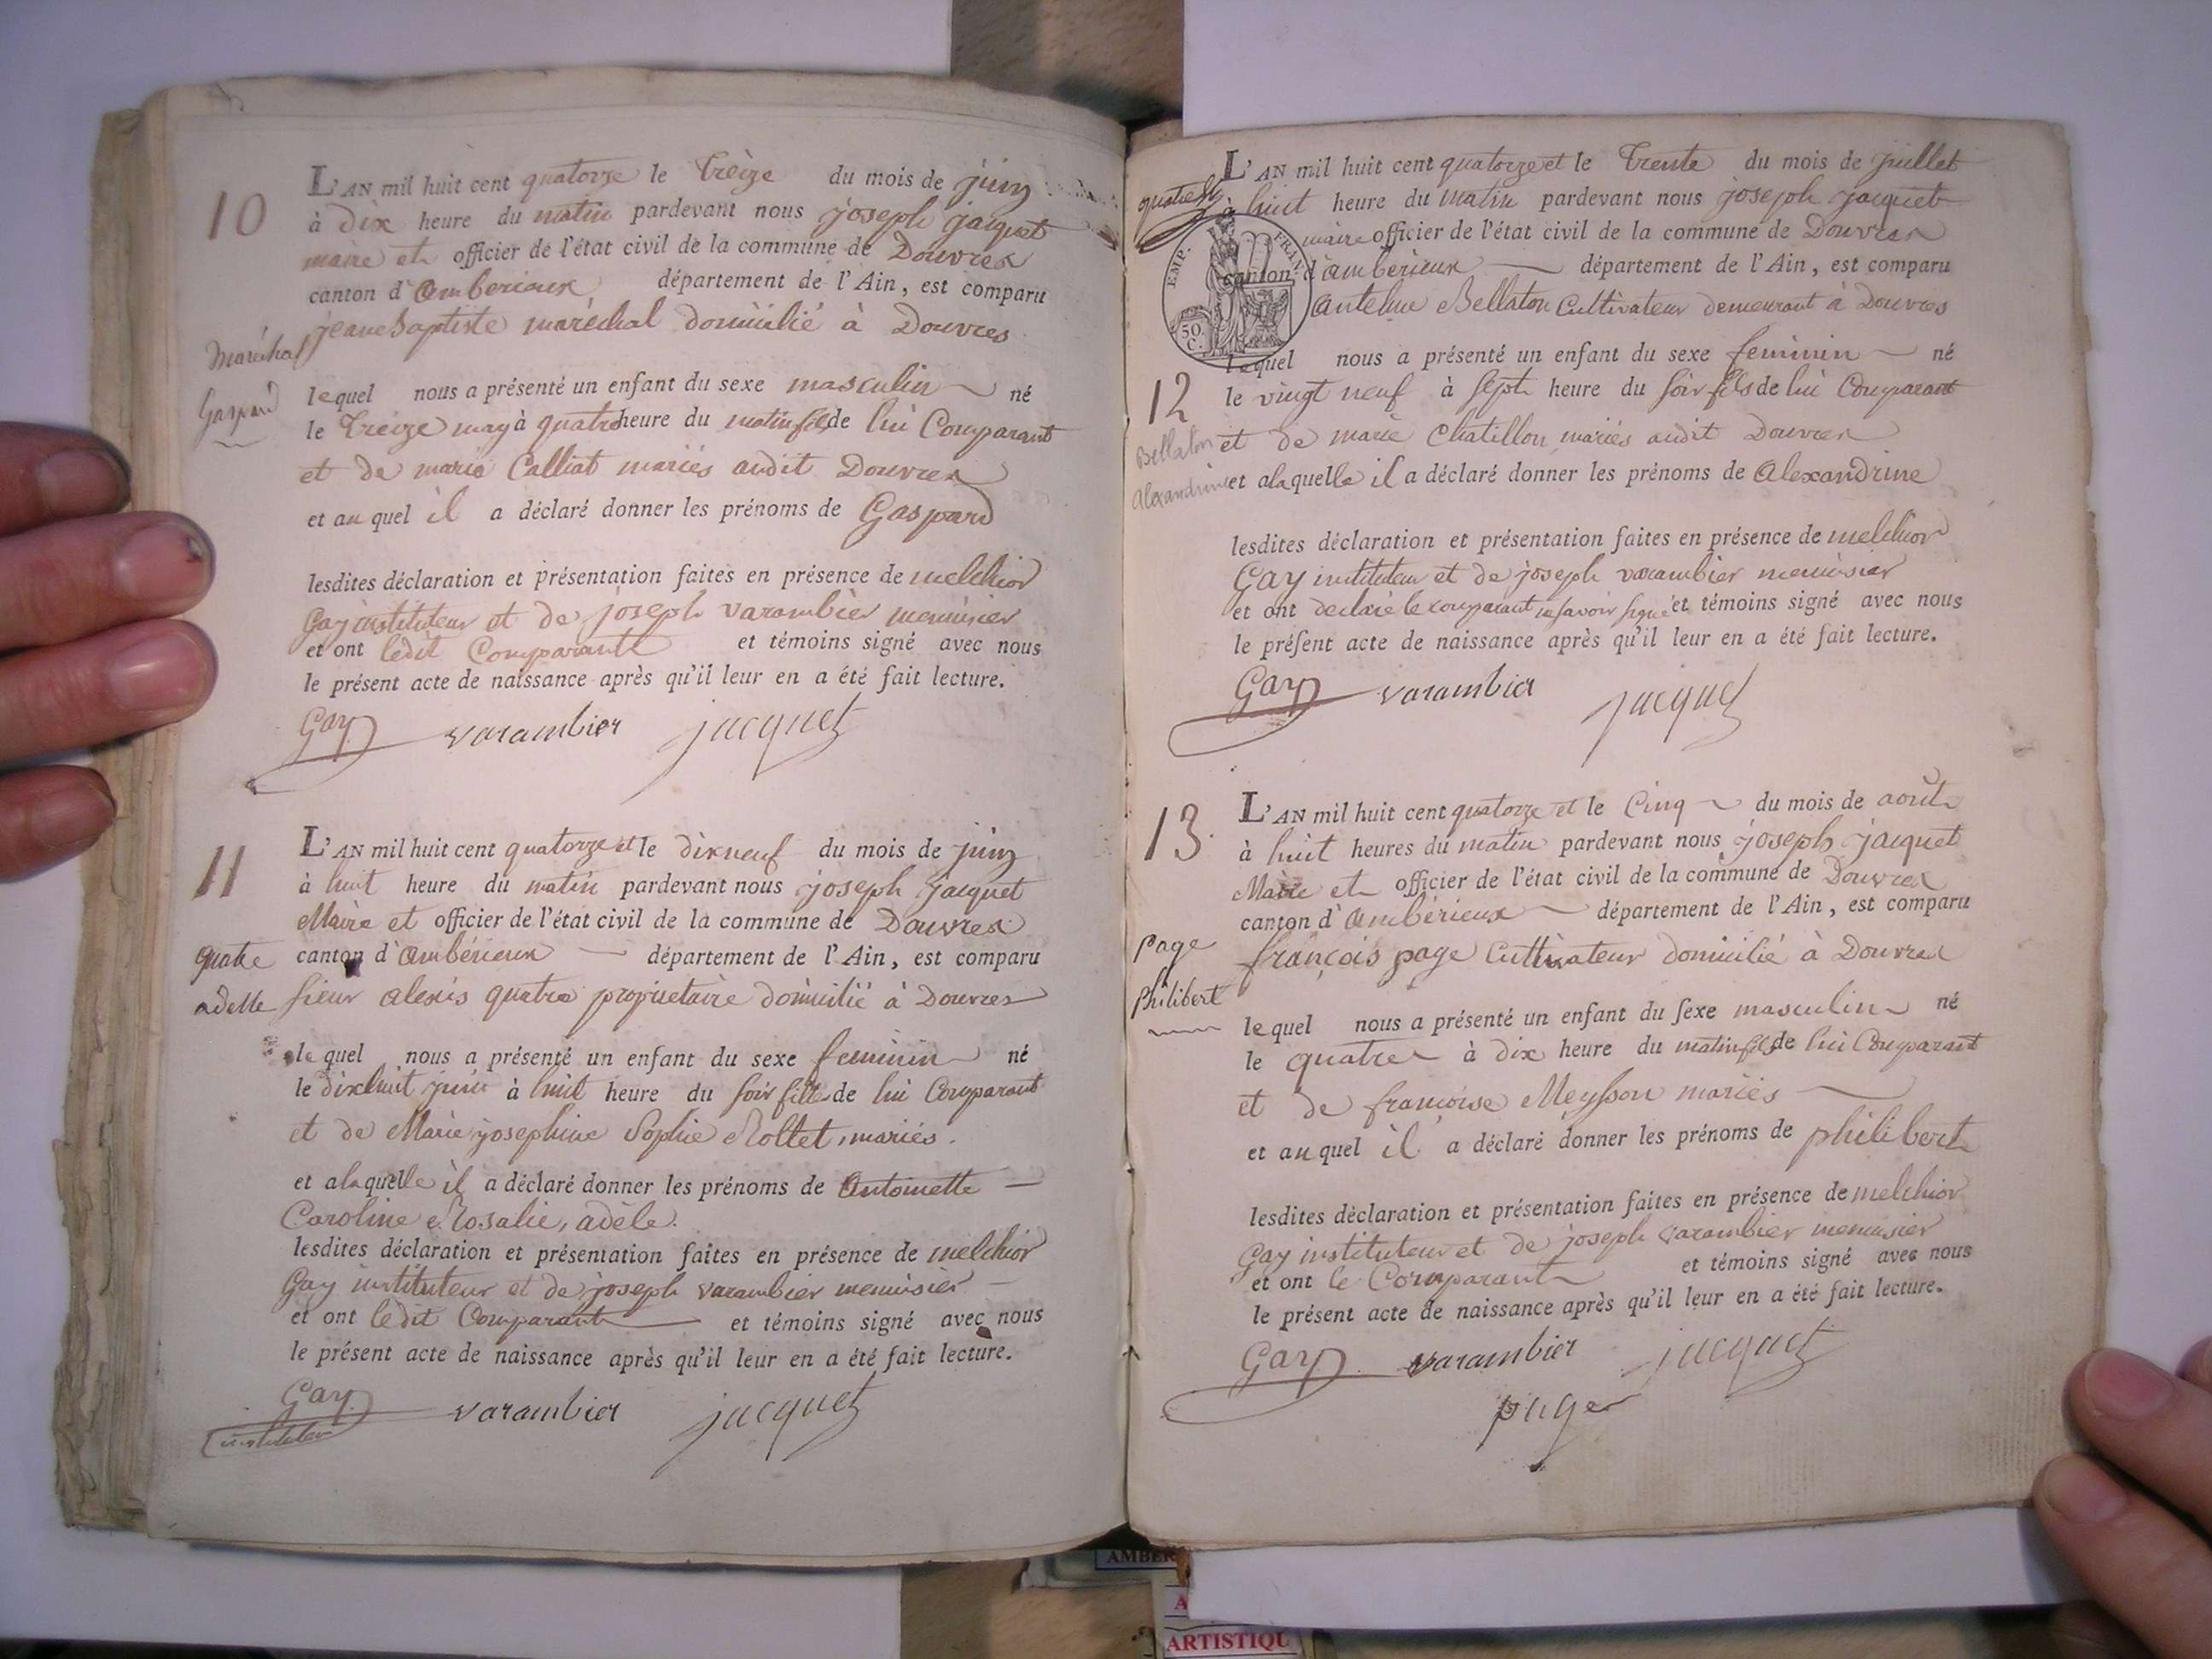 10
L'AN mil huit cent quatorze le treize du mois de juin
à dix heure du matin pardevant nous joseph jacquet
maire et officier de l'état civil de la commune de Douvres
canton d'ambérieux département de l'Ain, est comparu
jean baptiste maréchal domicilié à Douvres
Maréchal
Gaspard
lequel nous a présenté un enfant du sexe masculin né
le treize may à quatre heure du matin fils de lui Comparant
et de marie Calliat mariés audit Douvres
et auquel il a déclaré donner les prénoms de Gaspard
lesdites déclaration et présentation faites en présence de melchior
Gay instituteur et de joseph varambier menuisier
et ont ledit Comparant et témoins signé avec nous
le présent acte de naissance après qu'il leur en a été fait lecture.
Gay varambier jacquet
11
L'AN mil huit cent quatorze et le dixneuf du mois de juin
à huit heure du matin pardevant nous joseph jacquet
Maire et officier de l'état civil de la commune de Douvres
canton d'ambérieux département de l'Ain, est comparu
quatre
adelle
sieur alexis quatre propriétaire domicilié à Douvres
lequel nous a présenté un enfant du sexe feminin né
le dixhuit juin à huit heure du soir fille de lui Comparant
et de Marie josephine Sophie Rollet, mariés.
et alaquelle il a déclaré donner les prénoms de Antoinette
Caroline Rosalie, adèle.
lesdites déclaration et présentation faites en présence de melchior
Gay instituteur et de joseph varambier menuisier
et ont ledit Comparant et témoins signé avec nous
le présent acte de naissance après qu'il leur en a été fait lecture.
Gay varambier jacquet
instituteur
L'AN mil huit cent quatorze et le trente du mois de juillet
à huit heure du matin pardevant nous joseph jacquet
maire officier de l'état civil de la commune de Douvres
canton d'ambérieux département de l'Ain, est comparu
EMP. FRAN.
50 C.
antelme Bellaton Cultivateur demeurant à Douvres
lequel nous a présenté un enfant du sexe feminin né
12
le vingt neuf à sept heure du soir fils de lui Comparant
et de marie Chatillon mariés audit Douvres
Bellaton
alexandrine
et alaquelle il a déclaré donner les prénoms de Alexandrine
lesdites déclaration et présentation faites en présence de melchior
Gay instituteur et de joseph varambier menuisier
et ont déclaré le comparant ne savoir signé et témoins signé avec nous
le présent acte de naissance après qu'il leur en a été fait lecture.
Gay varambier jacquet
13.
L'AN mil huit cent quatorze et le Cinq du mois de août
à huit heures du matin pardevant nous joseph jacquet
Maire et officier de l'état civil de la commune de Douvres
canton d'ambérieux département de l'Ain, est comparu
page
philibert
françois page Cultivateur domicilié à Douvres
lequel nous a présenté un enfant du sexe masculin né
le quatre à dix heure du matin fils de lui Comparant
et de francoise Meysson mariés
et auquel il a déclaré donner les prénoms de philibert
lesdites déclaration et présentation faites en présence de melchior
Gay instituteur et de joseph varambier menuisier
et ont le Comparant et témoins signé avec nous
le présent acte de naissance après qu'il leur en a été fait lecture.
Gay varambier jacquet
page
ARTISTIQU